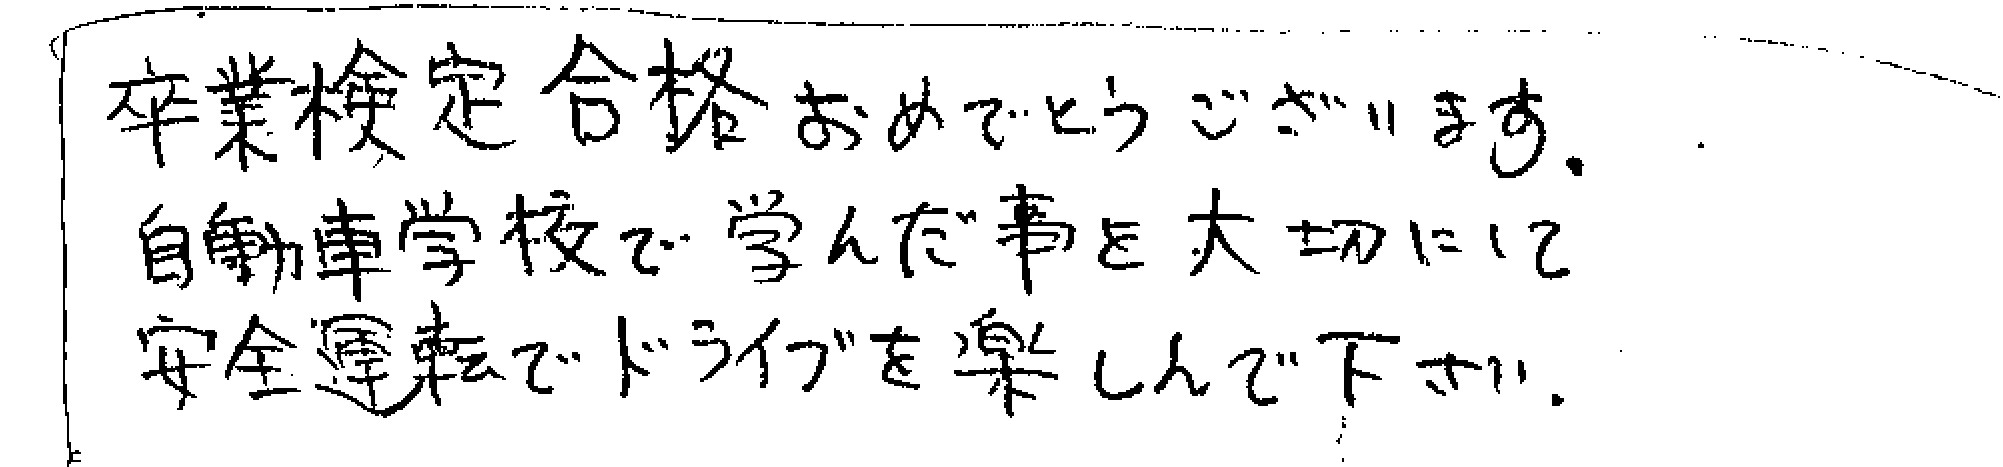 卒業検定合格おめでとうございます.
自動車学校で学んだ事を大切にして
安全運転でドライブを楽しんで下さい.